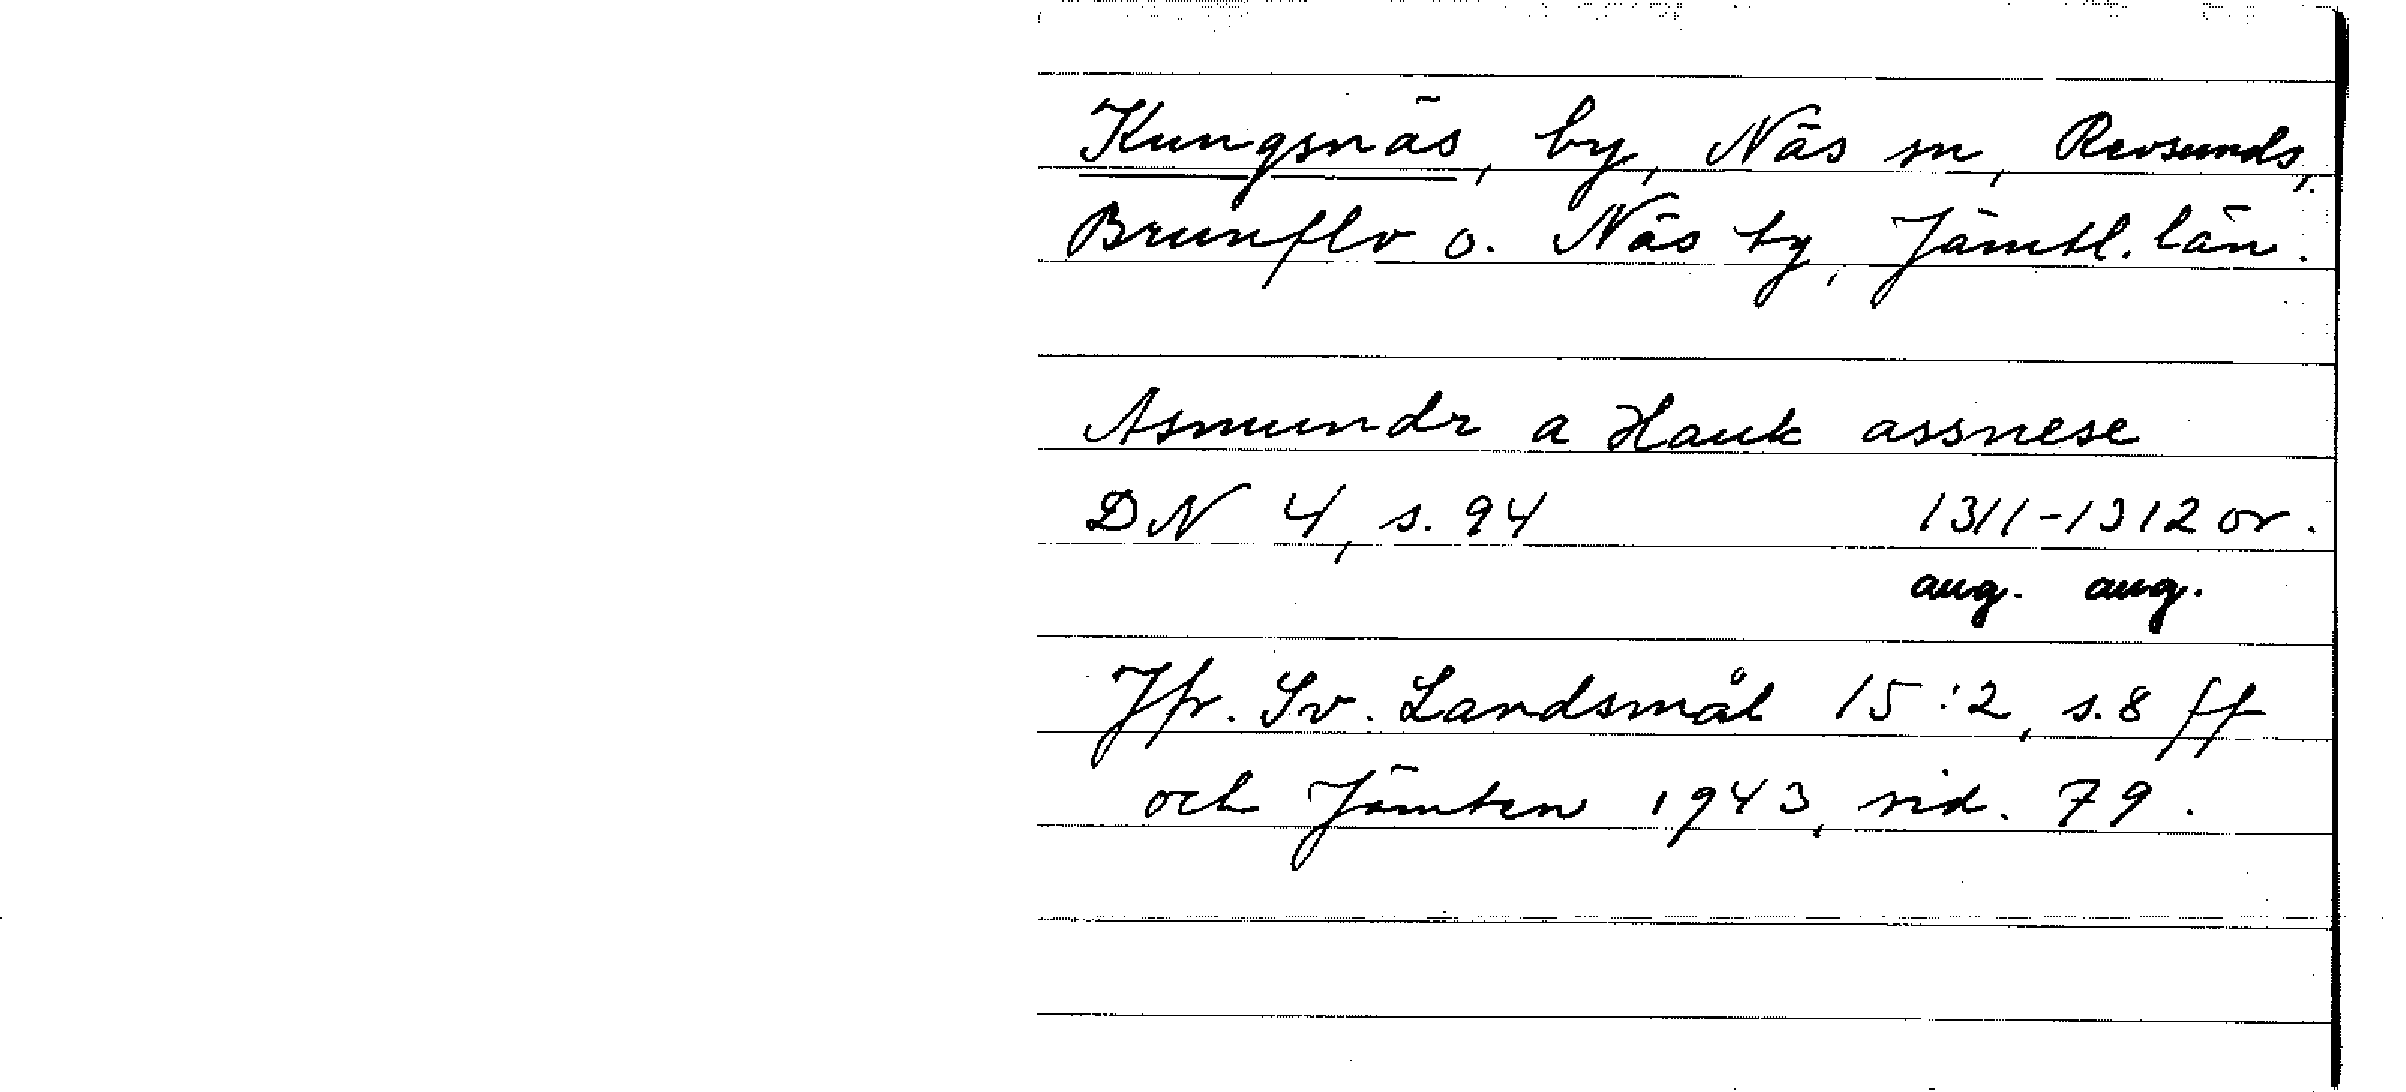 Kungsnäs, by, Näs sn, Revsunds,
Brunflo o. Näs tg, Jämtl. län.
Asmundr a Hauk assnese
DN 4, s. 94 1311-1312 or.
aug. aug.
Jfr. Sv. Landsmål 15:2, s. 8 ff
och Jämten 1943, sid. 79.